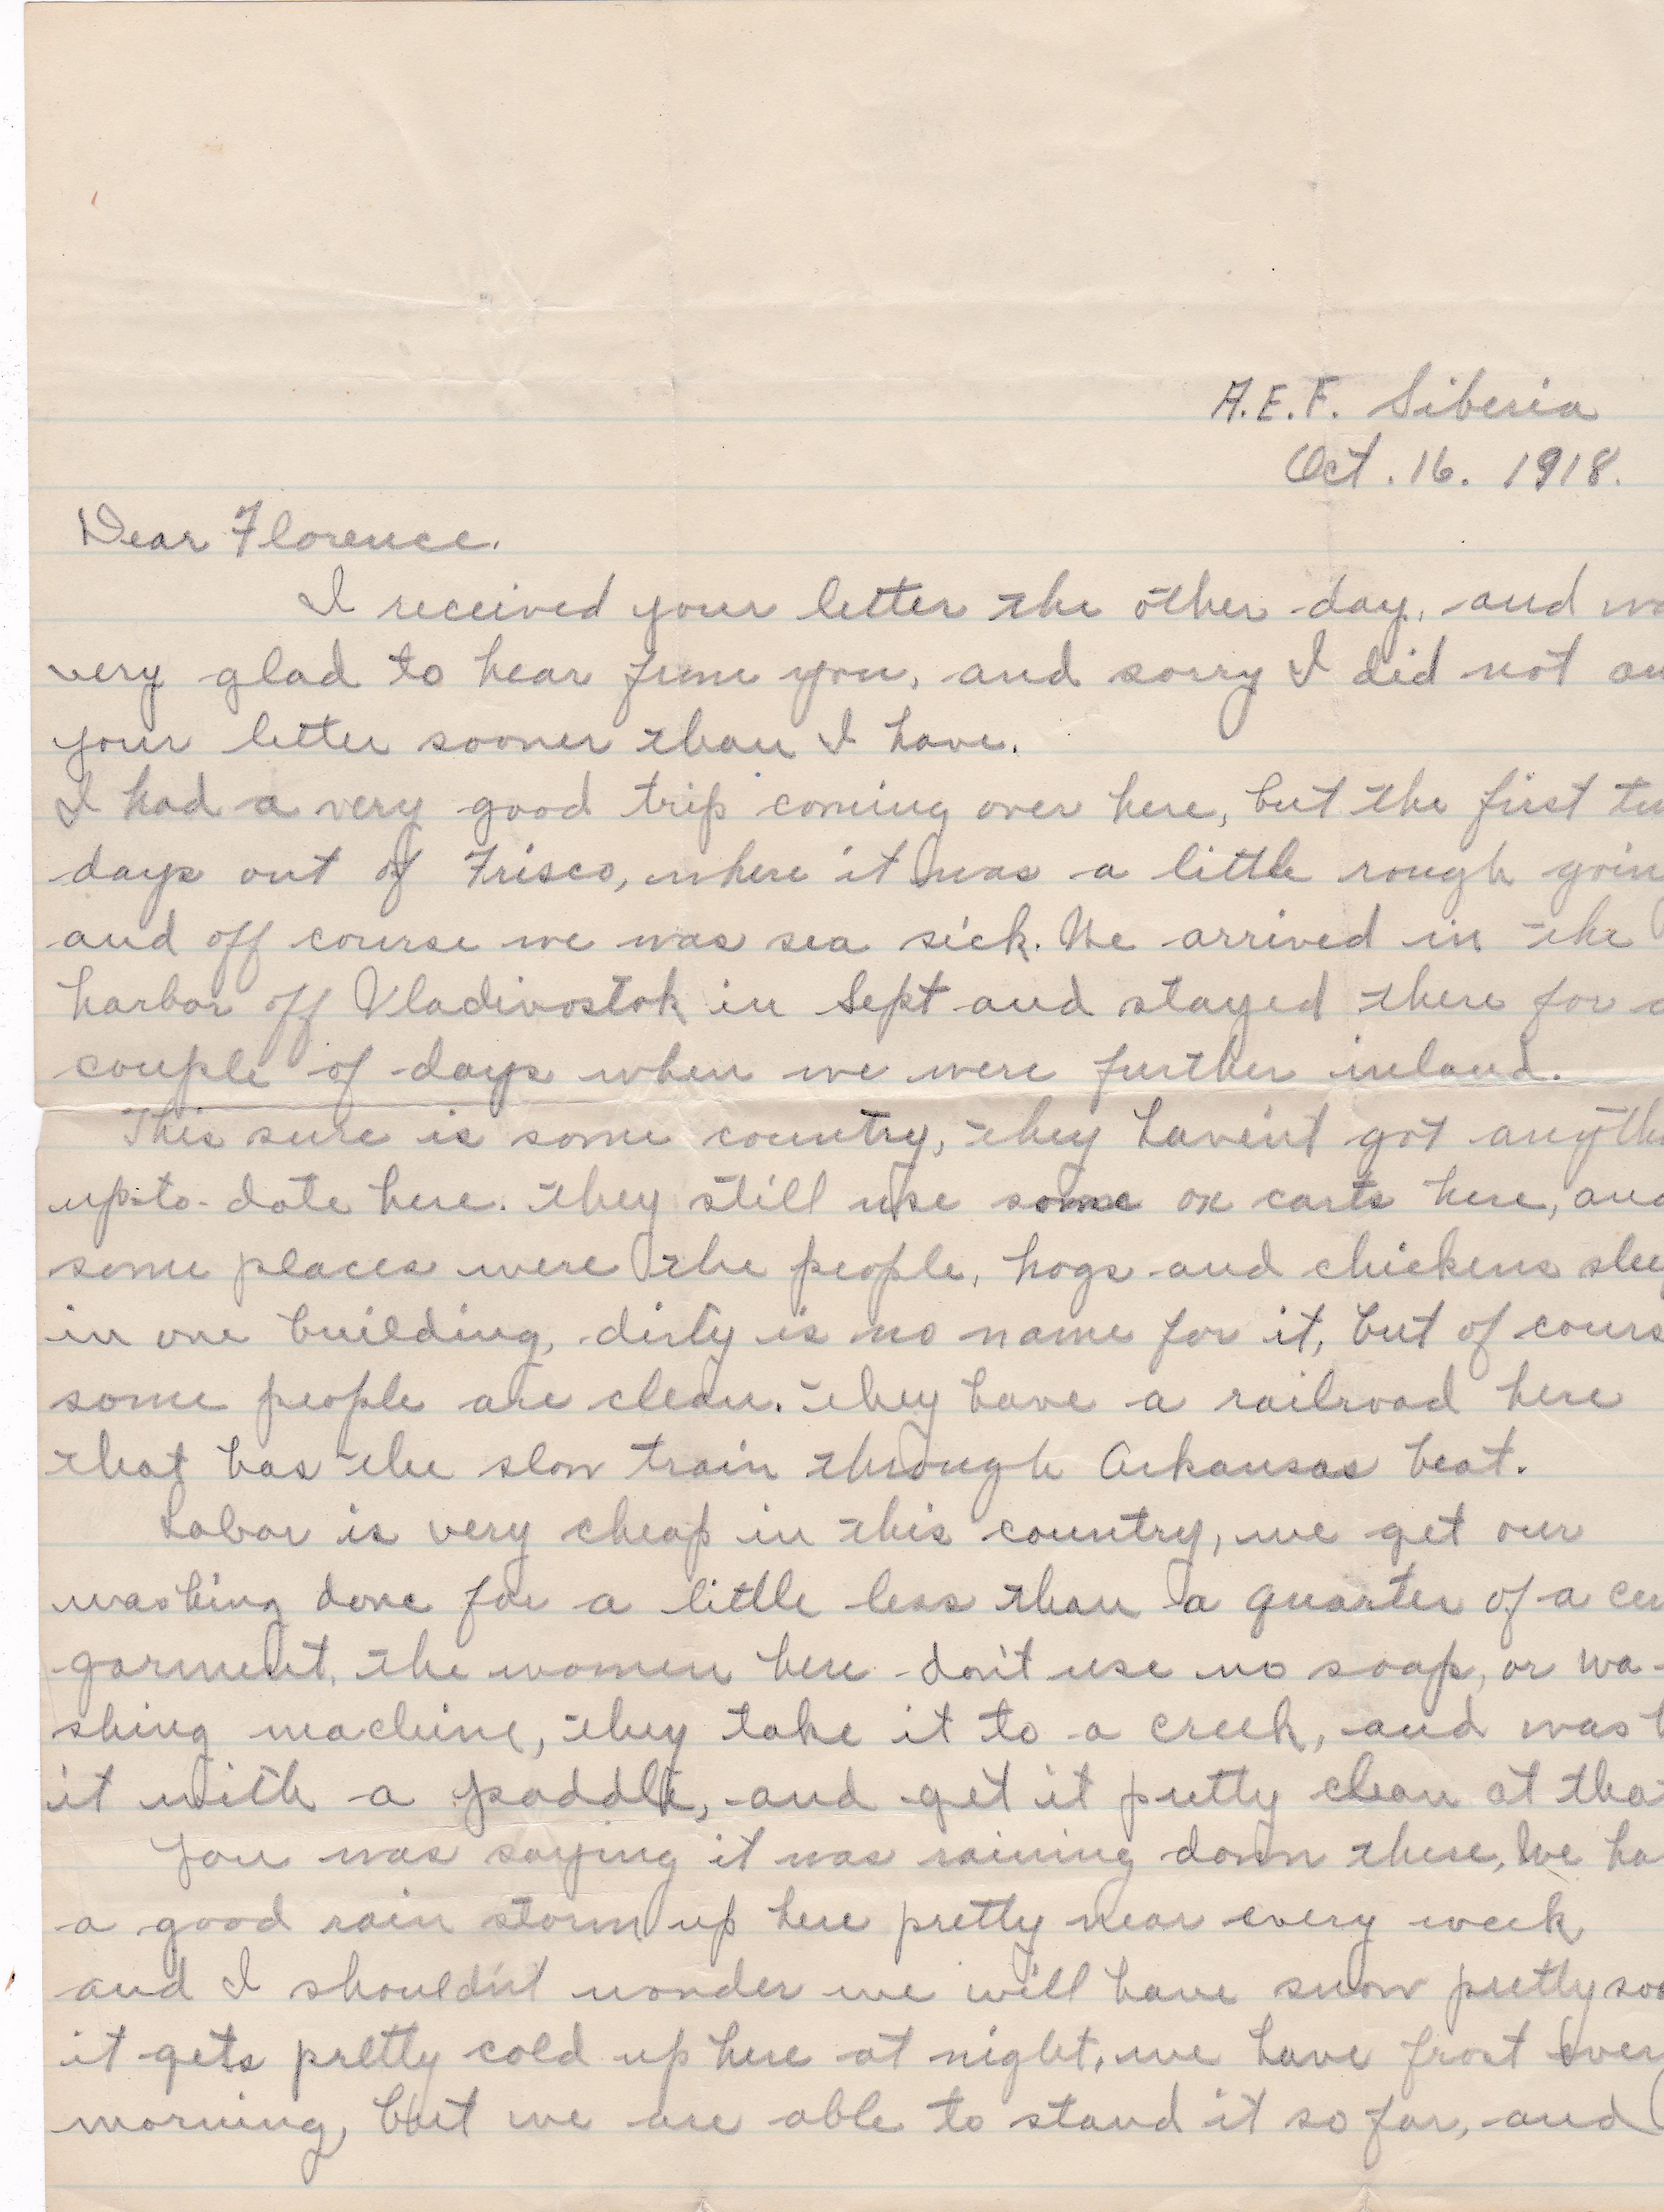 A.E.F. Siberia
Oct. 16. 1918.
Dear Florence.
I received your letter the other day, and wa
very glad to hear from you, and sorry I did not an
your letter sooner than I have.
I had a very good trip coming over here, but the first tw
days out of Frisco, where it was a little rough goin
and off course we was sea sick. We arrived in the
harbor off Vladivostok in Sept and stayed there for a
couple of days when we were further inland.
This sure is some country, they haven't got anythi
up-to-date here. they still use some ox carts here, and
some places were the people, hogs and chickens slee
in one building, dirty is no name for it, but of cours
some people are clean. they have a railroad here
that has the slow train through Arkansas beat.
Labor is very cheap in this country, we get our
washing done for a little less than a quarter of a cen
garment, the women here don't use no soap, or wa-
shing machine, they take it to a creek, and wash
it with a paddle, and get it pretty clean at that
You was saying it was raining down there, We ha
a good rain storm up here pretty near every week
and I shouldn't wonder we will have snow pretty soo
it gets pretty cold up here at night, we have frost ever
morning, but we are able to stand it so far, and